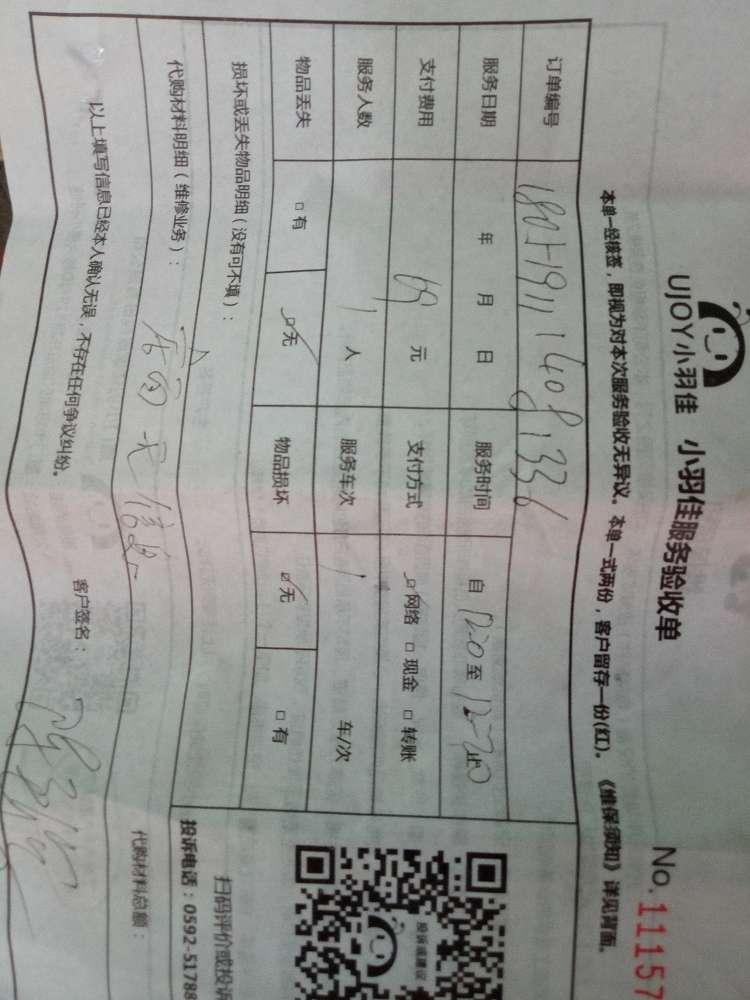 UJOY小羽佳 小羽佳服务验收单 No. 11157
本单一经核签，即视为对本次服务验收无异议。本单一式两份，客户留存一份(红)。《维保须知》详见背面。
订单编号
服务日期 年 月 日 服务时间 自 12:0 至 12:20 止
支付费用 69 元 支付方式 ☑网络 □现金 □转账
服务人数 1 人 服务车次 1 车/次
物品丢失 □有 ☑无 物品损坏 ☑无 □有
损坏或丢失物品明细（没有可不填）：
代购材料明细（维修业务）：
代购材料总额：
以上填写信息已经本人确认无误，不存在任何争议纠纷。 客户签名：
投诉或建议
扫码评价或投诉
投诉电话：0592-51788